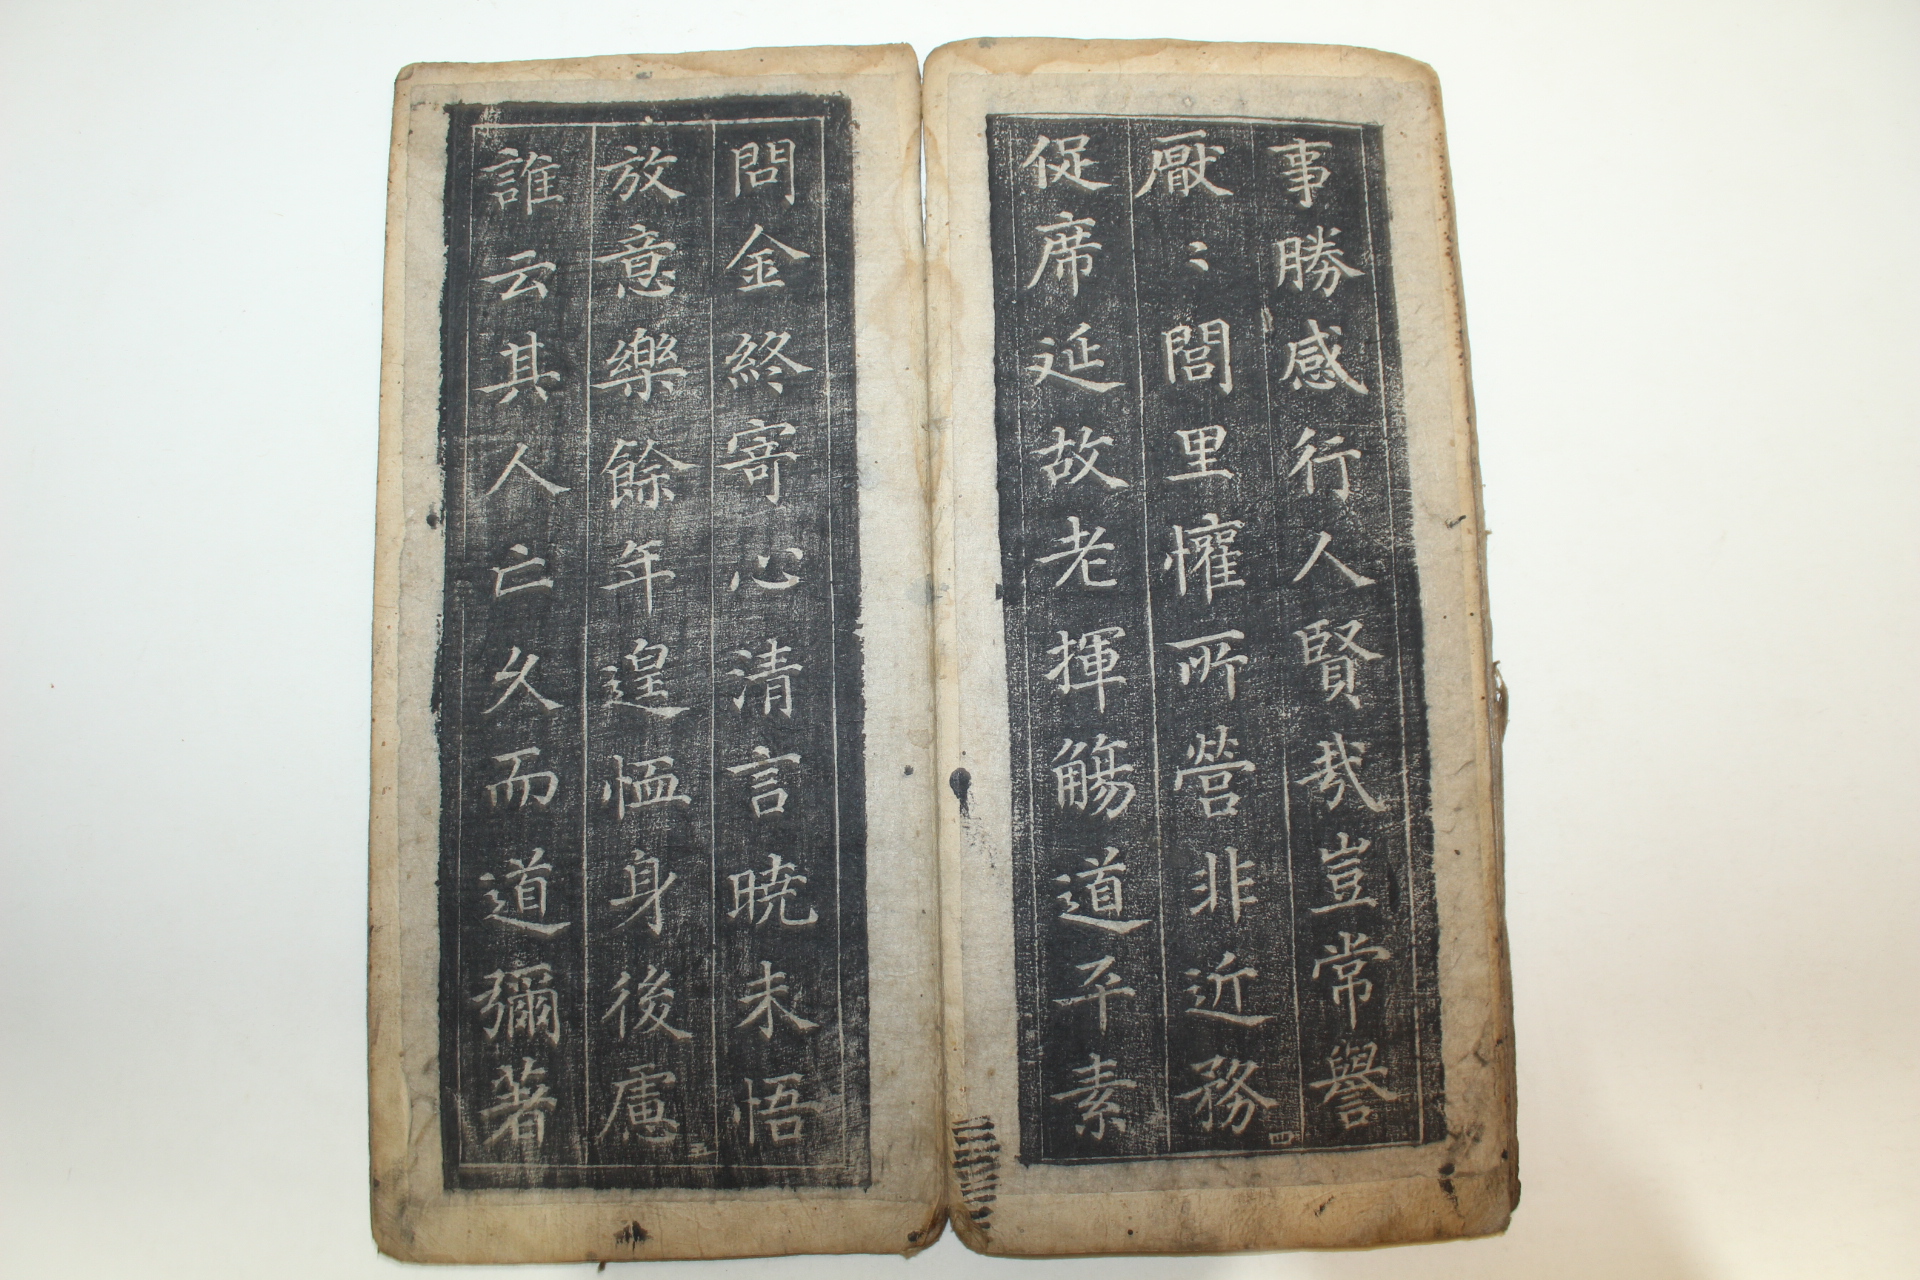 事勝感行人賢哉豈常譽
厭〻閭里懽所營非近務
促席延故老揮觴道平素
四
問金終寄心清言曉未悟
放意樂餘年遑恤身後慮
誰云其人亡久而道彌著
五